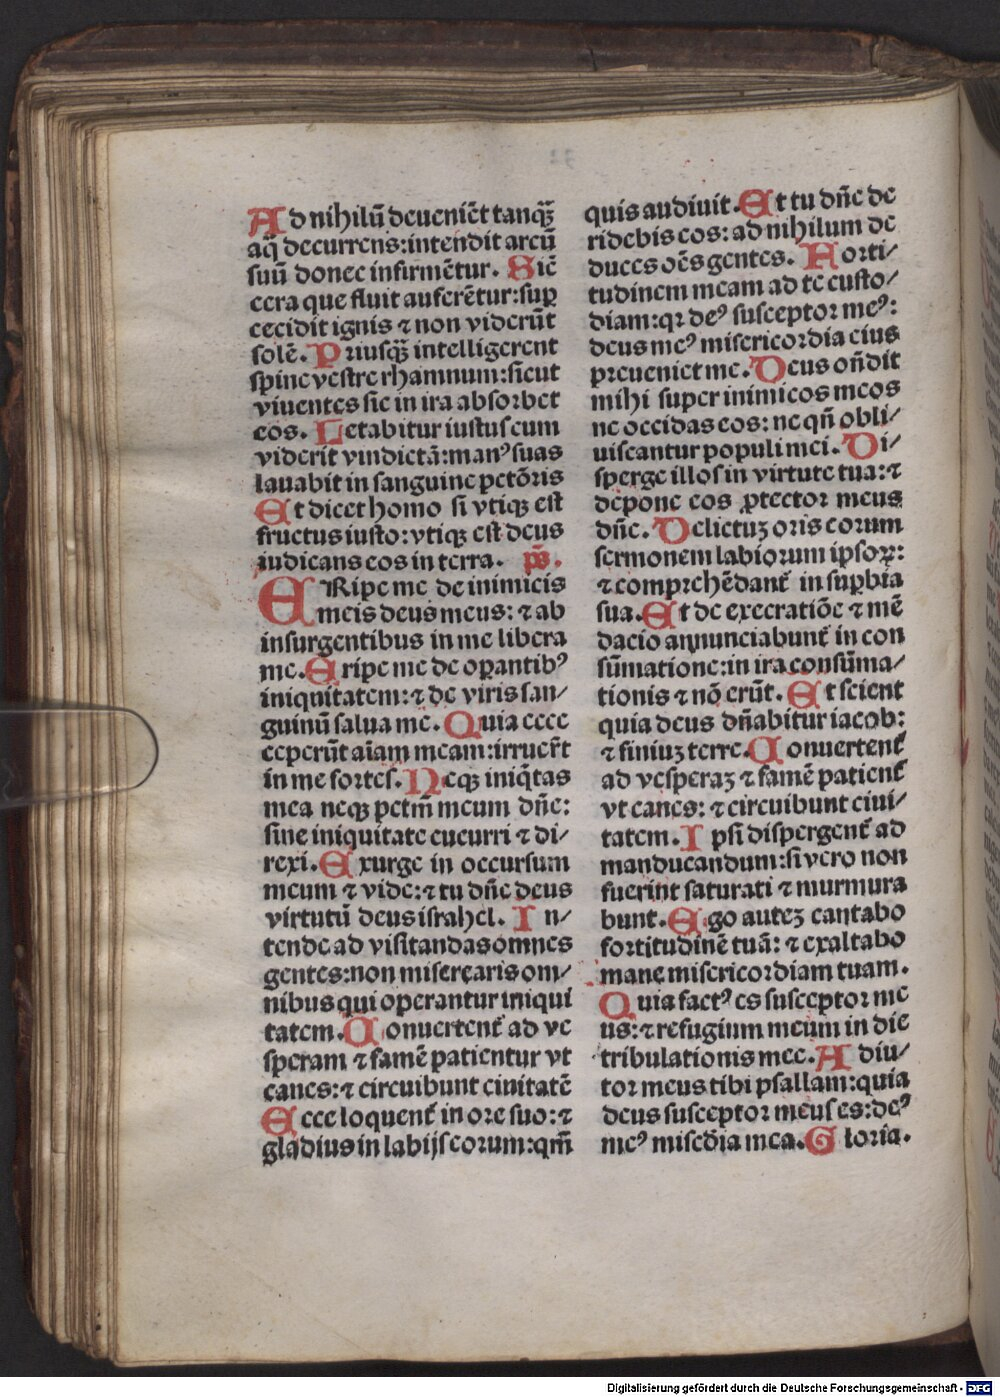 Ad nihilū deueniēt tanqꝫ̄
aq̄ decurrens: intendit arcū
suū donec infirmētur. Sic̄
cera que fluit auferētur: suꝑ
cecidit ignis ⁊ non viderūt
solē. Priusqꝫ̄ intelligerent
spine vestre rhamnum: sicut
viuentes sic in ira absorbet
eos. Letabitur iustus cum
viderit vindictā: manꝰ suas
lauabit in sanguine pctōris
Et dicet homo si vtiqꝫ est
fructus iusto: vtiqꝫ est deus
iudicans eos in terra. p̄s.
ERipe me de inimicis
meis deus meus: ⁊ ab
insurgentibus in me libera
me. Eripe me de oꝑantibꝰ
iniquitatem: ⁊ de viris san/
guinū salua me. Quia ecce
ceperūt aīam meam: irruer̄t
in me fortes. Neqꝫ iniq̄tas
mea neqꝫ pctm̄ meum dn̄e:
sine iniquitate cucurri ⁊ di/
rexi. Exurge in occursum
meum ⁊ vide: ⁊ tu dn̄e deus
virtutū deus israhel. In/
tende ad visitandas omnes
gentes: non miserearis om/
nibus qui operantur iniqui
tatem. Conuertent̄ ad ve
speram ⁊ famē patientur vt
canes: ⁊ circuibunt ciuitatē
Ecce loquent̄ in ore suo: ⁊
gladius in labijs eorum: qm̄
quis audiuit. Et tu dn̄e de
ridebis eos: ad nihilum de
duces oēs gentes. Forti/
tudinem meam ad te custo/
diam: qꝛ deꝰ susceptor meꝰ:
deus meꝰ misericordia eius
preueniet me. Deus on̄dit
mihi super inimicos meos
ne occidas eos: ne qn̄ obli/
uiscantur populi mei. Di/
sperge illos in virtute tua: ⁊
depone eos ꝓtector meus
dn̄e. Delictuꝫ oris eorum
sermonem labiorum ipsoꝝ:
⁊ comprehēdant̄ in suꝑbia
sua. Et de execratiōe ⁊ mē
dacio annunciabunt̄ in con
sūmatione: in ira consūma/
tionis ⁊ nō erūt. Et scient
quia deus dn̄abitur iacob:
⁊ finiuꝫ terre. Conuertent̄
ad vesperaꝫ ⁊ famē patient̄
vt canes: ⁊ circuibunt ciui/
tatem. Ipsi dispergent̄ ad
manducandum: si vero non
fuerint saturati ⁊ murmura
bunt. Ego auteꝫ cantabo
fortitudinē tuā: ⁊ exaltabo
mane misericordiam tuam.
Quia factꝰ es susceptor me
us: ⁊ refugium meum in die
tribulationis mee. Adiu/
tor meus tibi psallam: quia
deus susceptor meus es: deꝰ
meꝰ misc̄dia mea. Gloria.
Digitalisierung gefördert durch die Deutsche Forschungsgemeinschaft - DFG